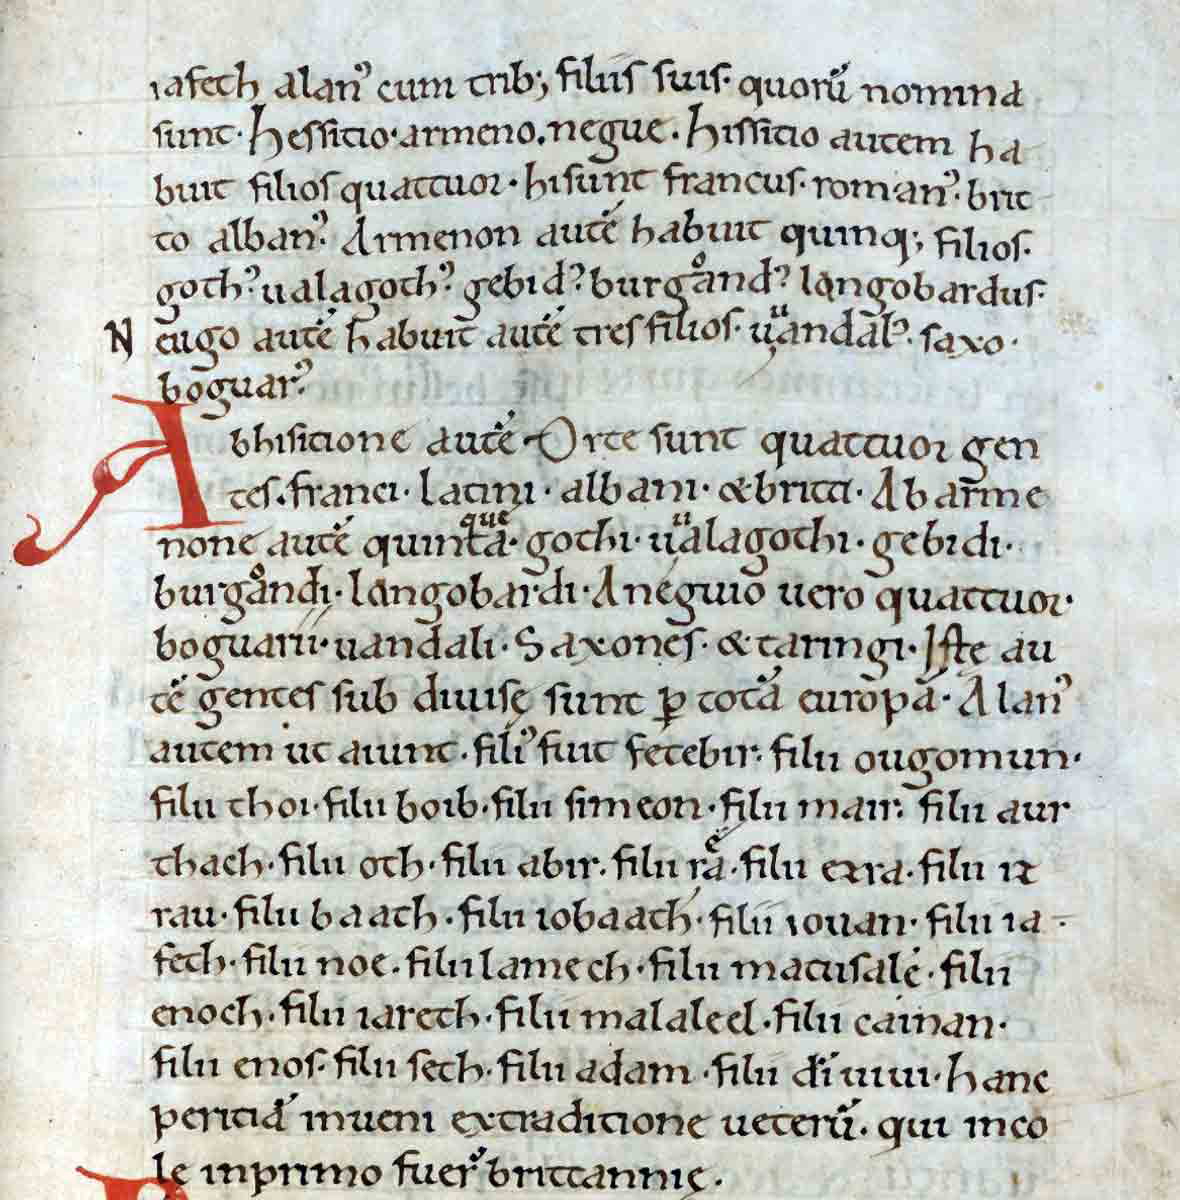 iafeth alanꝰ cum trib; filiis suis· quorū nomina
sunt· hessitio· armeno. negue. hissitio autem ha
buit filios quattuor· hi sunt francus· romanꝰ· brit
to albanꝰ. Armenon autē habuit quinq; filios·
gothꝰ· ualagothꝰ· gebidꝰ· burgoandꝰ· langobardus·
N eugo autē habuit autē tres filios· uuandalꝰ· saxo·
boguarꝰ·
Abhisitione autē Orte sunt quattuor gen
tes. franci· latini· albani· & britti· Ab arme
none autē quintaque· gothi· uualagothi· gebidi·
burgoandi· langobardi· A neguio uero quattuor·
boguarii· uandali· Saxones· & taringi· Iste au
tē gentes sub diuisę sunt ꝑ totā europā· Alanꝰ
autem ut aiunt· filiꝰ fuit fetebir· filii ougomun·
filii thoi· filii boib· filii simeon· filii mair· filii aur
thach· filii oth· filii abir· filii rea· filii ezra· filii iz
rau· filii baath· filii iobaath· filii iouan· filii ia-
feth· filii noe. filii lamech· filii matusalē· filii
enoch· filii iareth· filii malaleel· filii cainan·
filii enos· filii seth· filii adam· filii dī uiui· hanc
peritiā inueni ex traditione ueterū· qui inco
le in primo fuerꝰ brittannię.